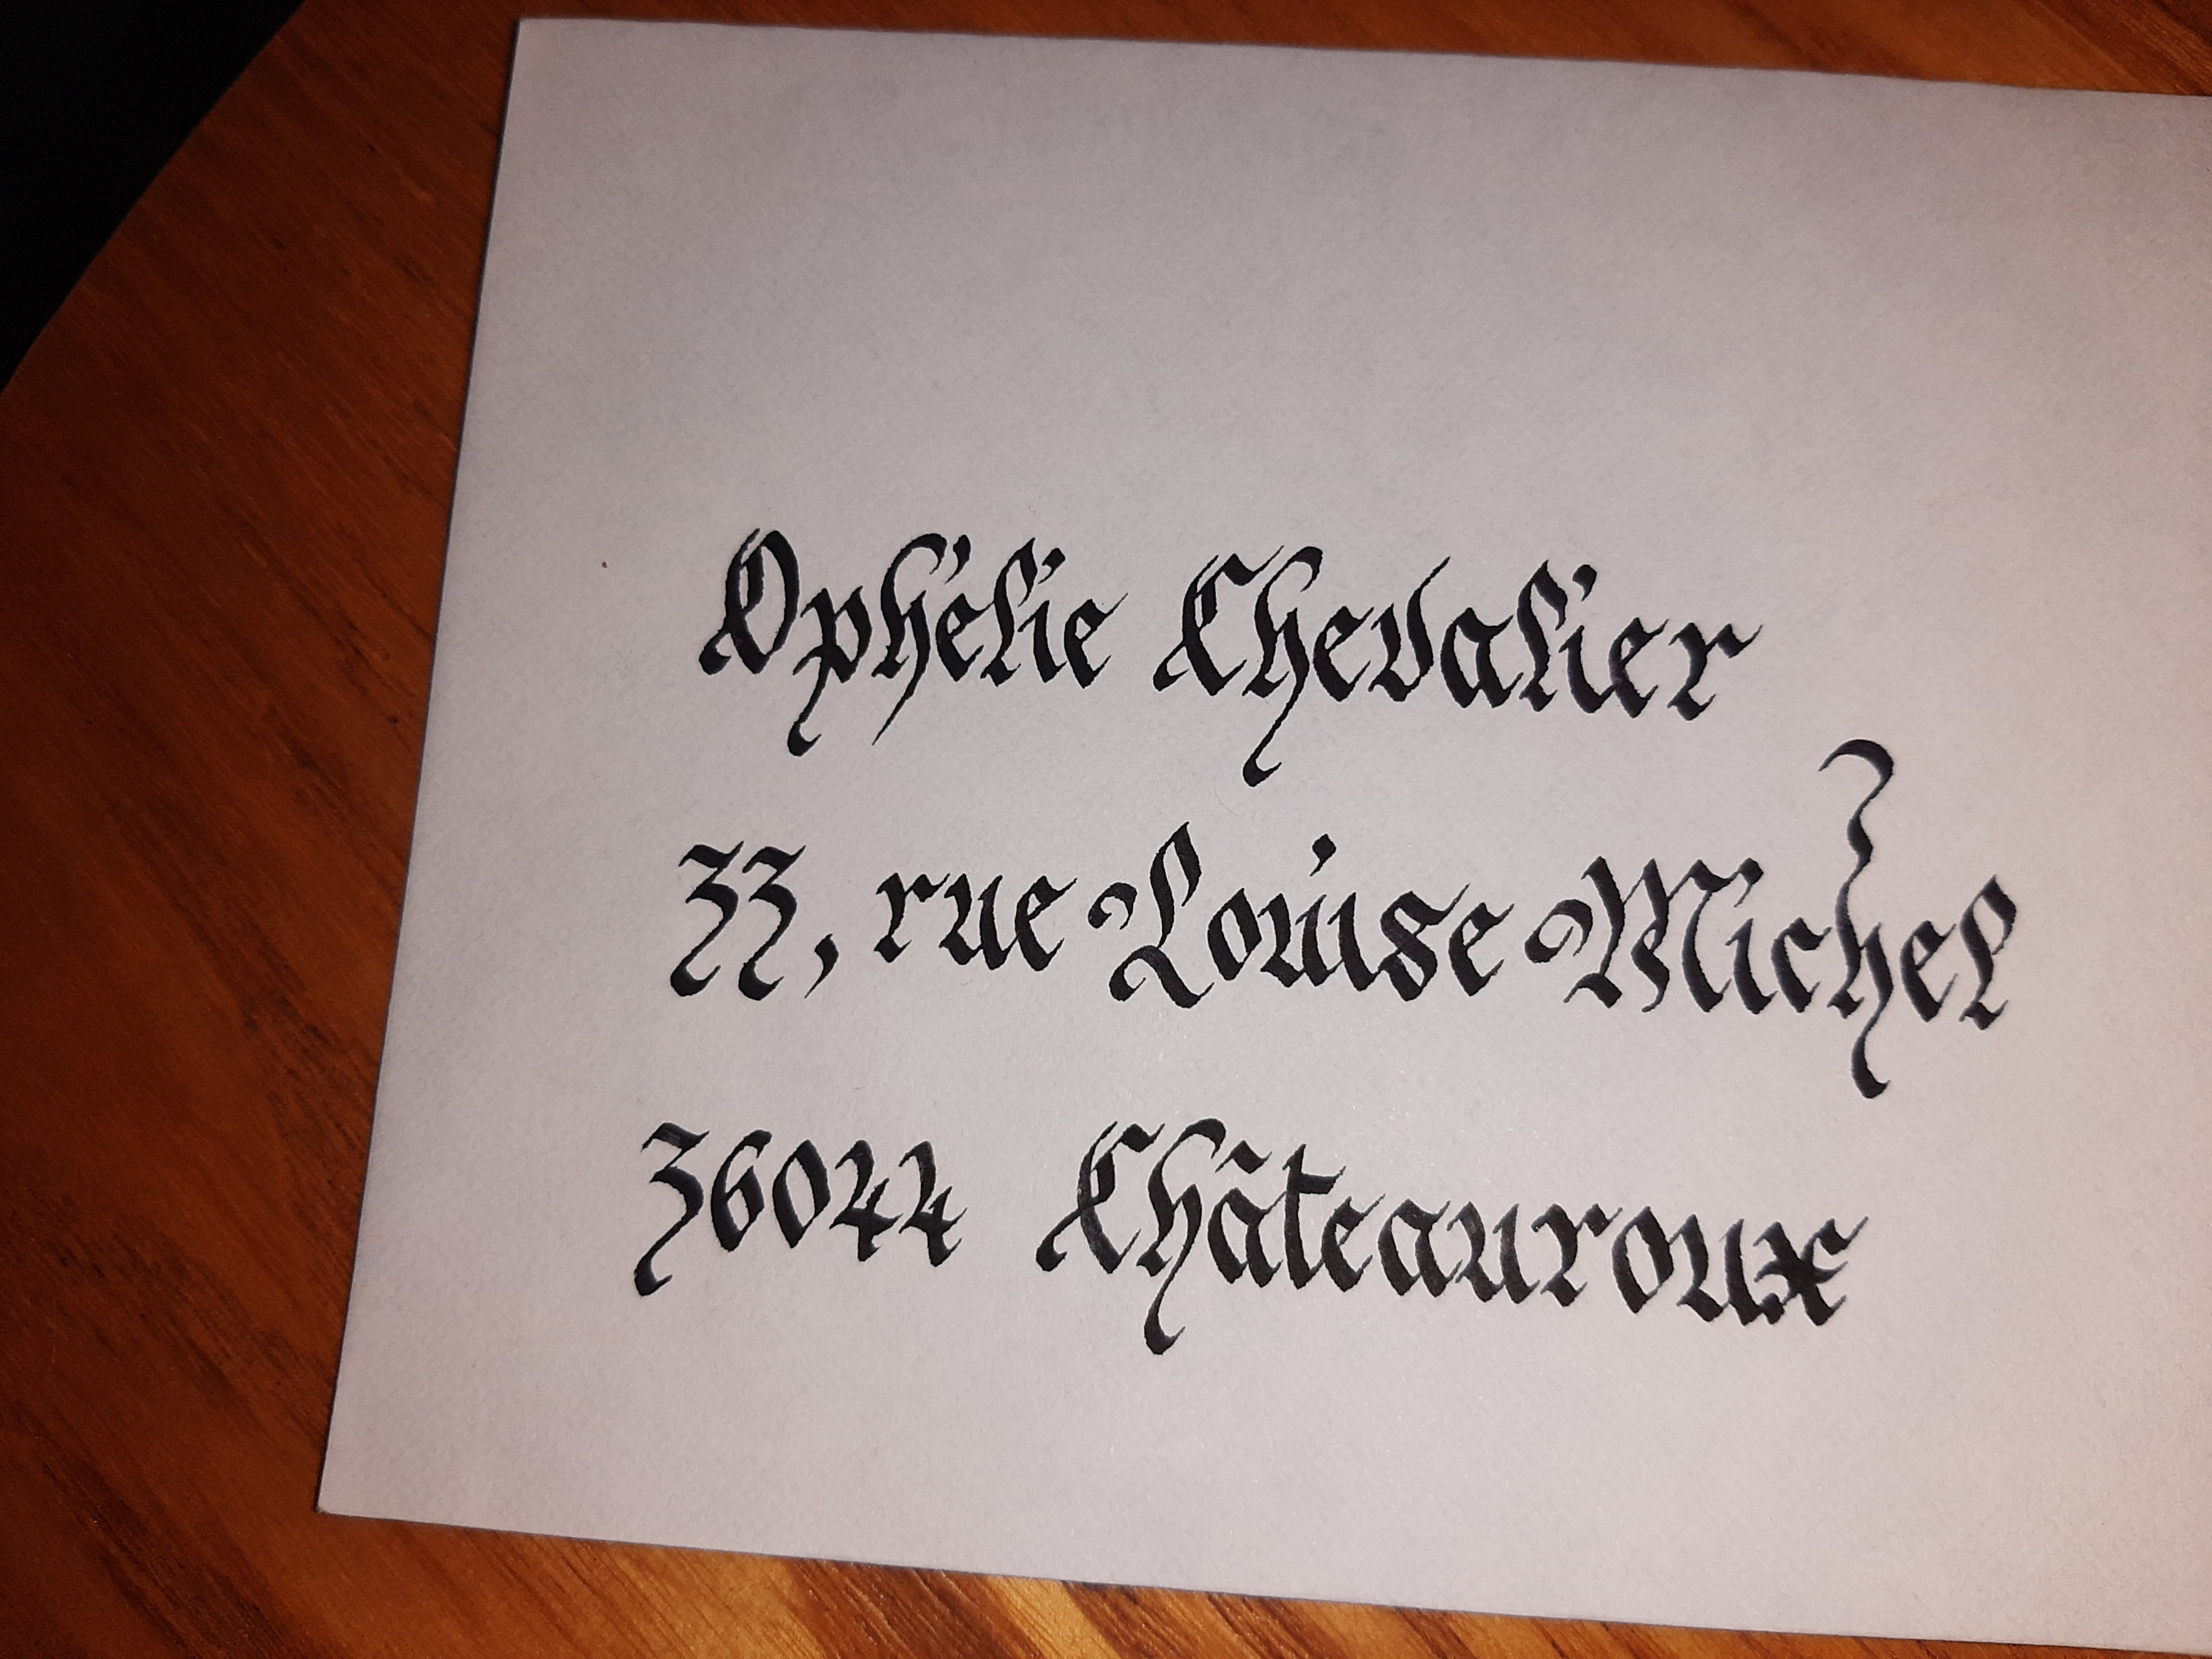 Ophélie Chevalier
33, rue Louise Michel
36044 Châteauroux